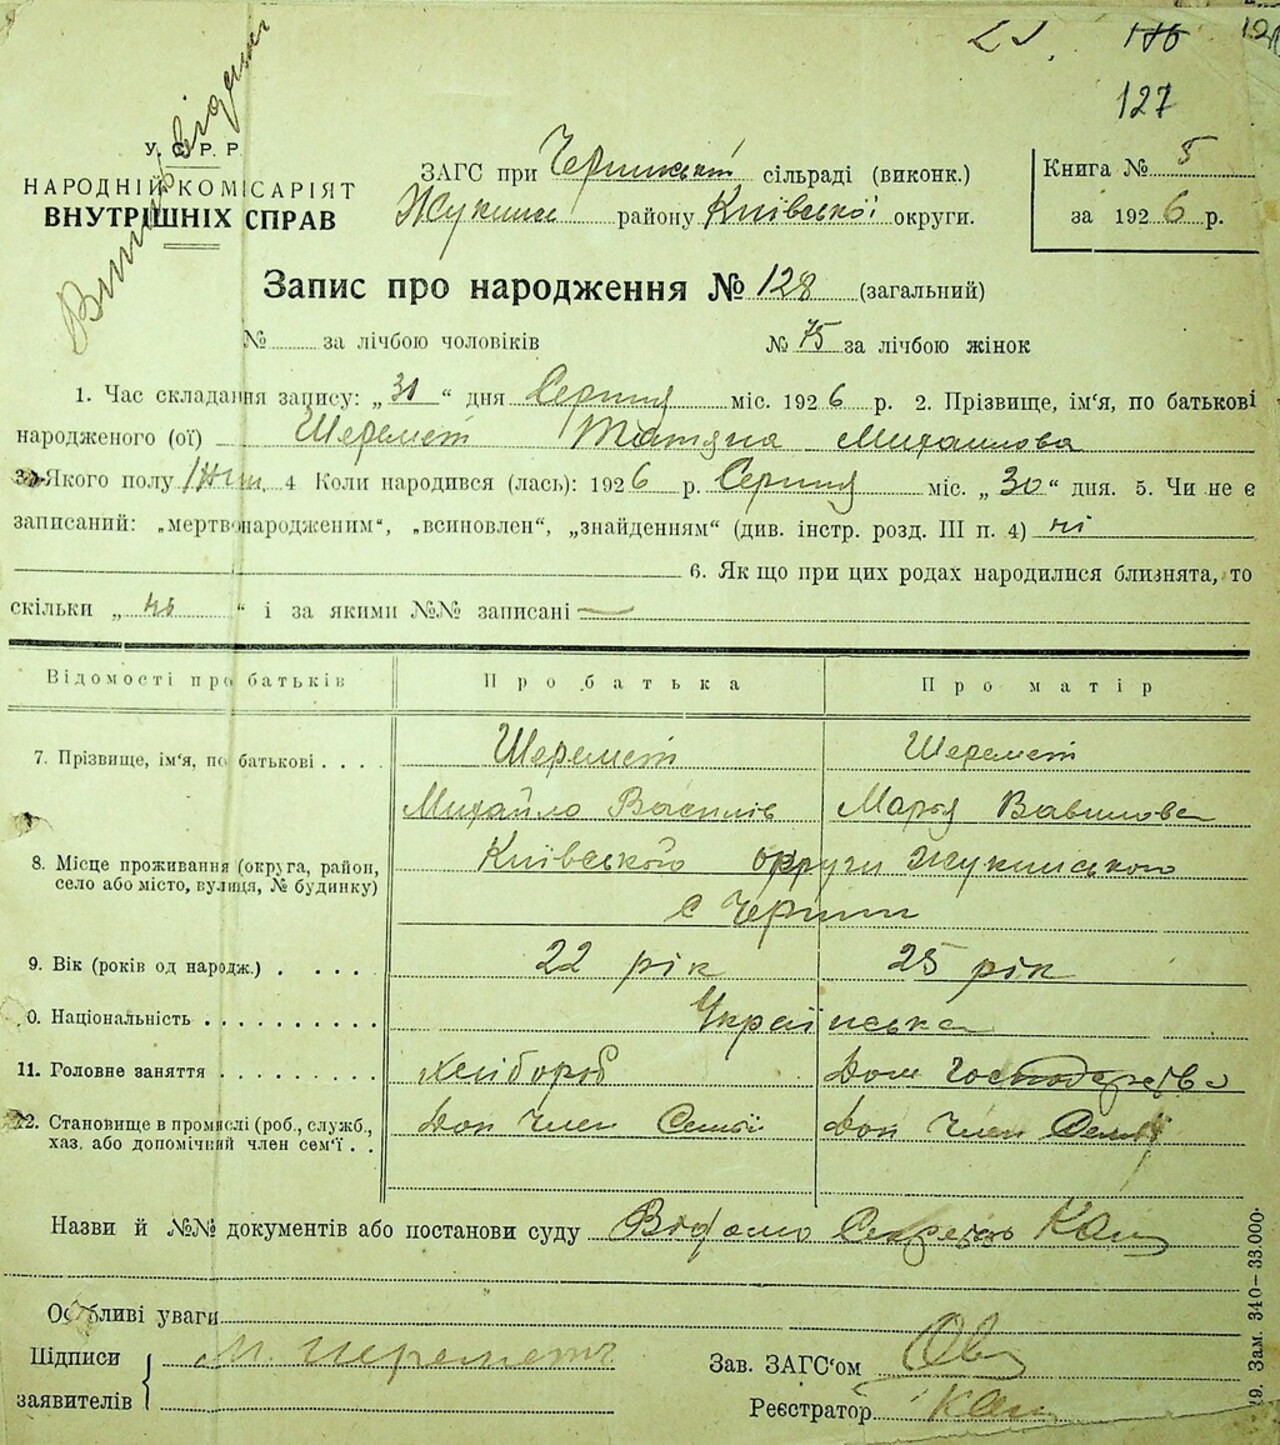 127
У. С. Р. Р.
НАРОДНІЙ КОМІСАРІЯТ
ВНУТРІШНІХ СПРАВ
ЗАГС при сільраді (виконк.)
Жукин району Київської округи.
Книга № 5
за 1926 р.
Запис про народження № 128 (загальний)
№ за лічбою чоловіків № 75 за лічбою жінок
1. Час складання запису: „31“ дня Серпня міс. 1926 р. 2. Прізвище, ім'я, по батькові
народженого (ої) Шеремет Татяна Михаилова
3. Якого полу жін. 4 Коли народився (лась): 1926 р. Серпня міс. „30“ дня. 5. Чи не є
записаний: „мертвонародженим“, „всиновлен“, „знайденням“ (див. інстр. розд. III п. 4) ні
6. Як що при цих родах народилися близнята, то
скільки „ні“ і за якими №№ записані —
Відомості про батьків Про батька Про матір
7. Прізвище, ім'я, по батькові . . . . Шеремет Шеремет
Михайло Василів Марья Вавилова
8. Місце проживання (округа, район,
село або місто, вулиця, № будинку) Київського округи Жукинського
с Черпин
9. Вік (років од народж.) . . . . 22 рік 25 рік
0. Національність . . . . . . . . . . Українська
11. Головне заняття . . . . . . . . . хлібороб Дом Господарство
12. Становище в промислі (роб., служб.,
хаз. або допомічний член сем'ї . . Доп Член Семьї Доп Член Семьї
Назви й №№ документів або постанови суду Відомо
Особливі уваги
Підписи
заявителів
М. Шереметь
Зав. ЗАГС'ом
Реєстратор
9. Зам. 340—33.000.